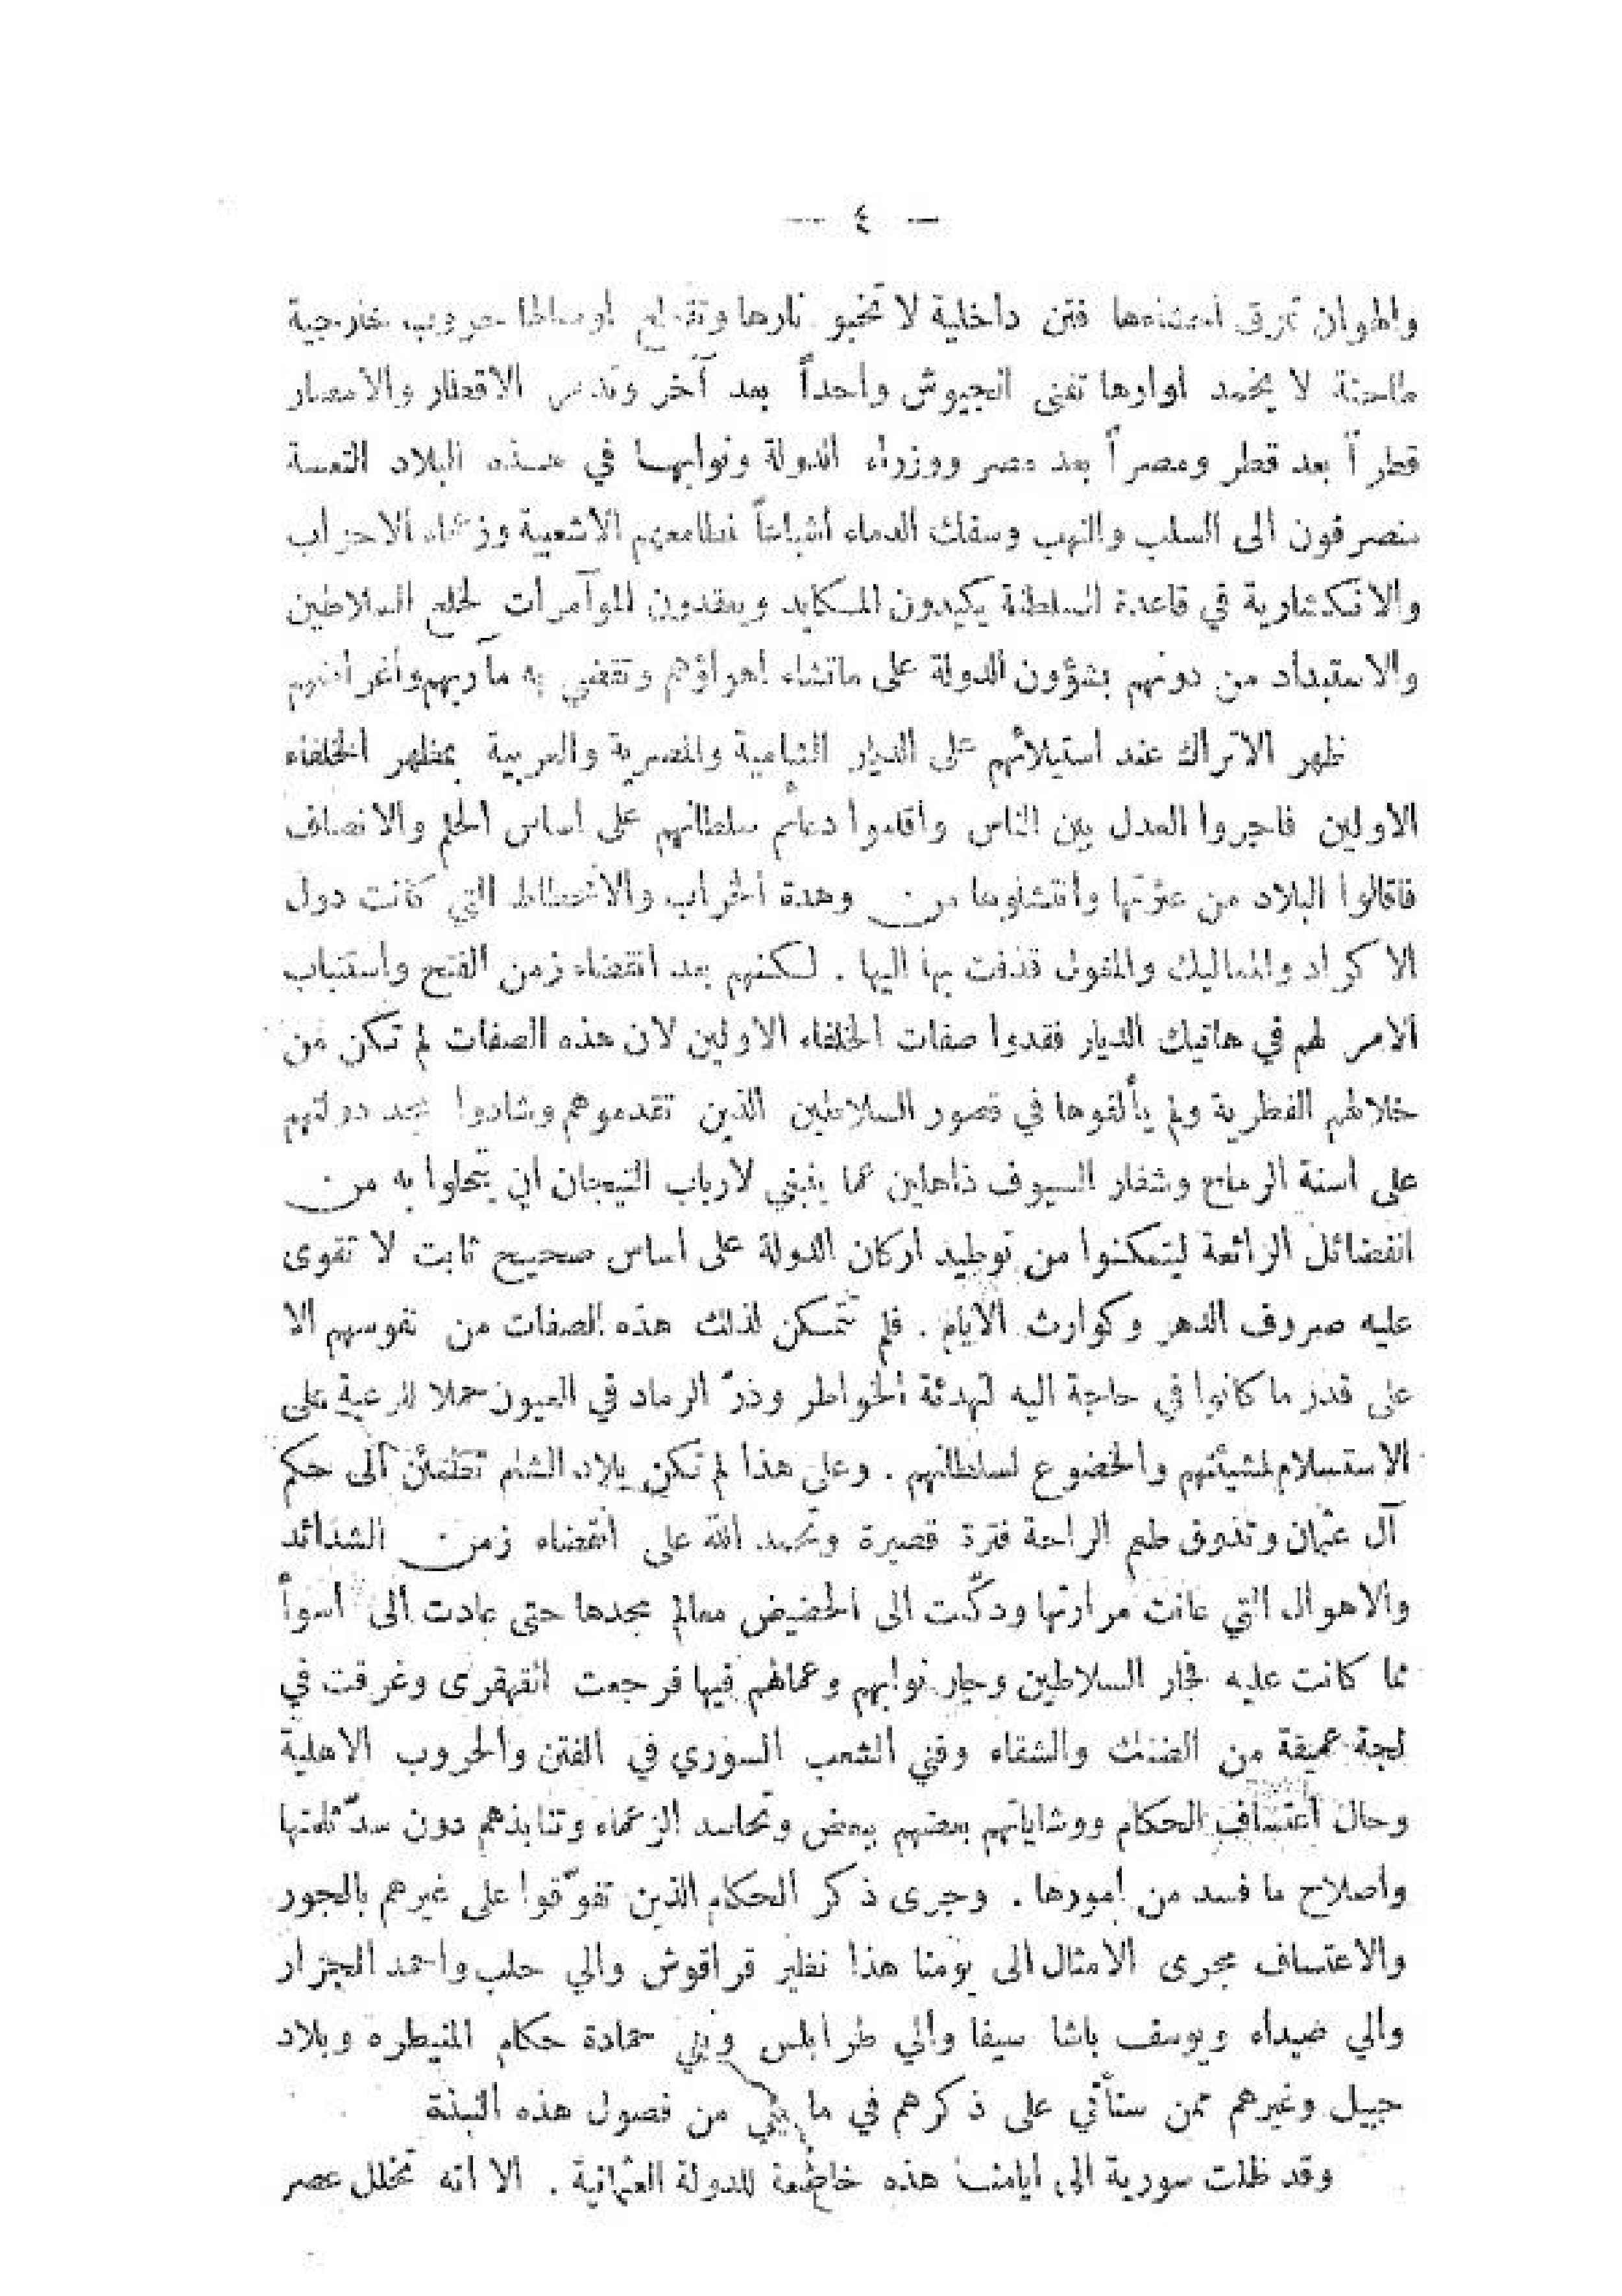 — ٤ —
والهوان تمزق احشاءها فتن داخلية لا تخبو نارها وتقطع اوصالها حروب خارجية
طاحنة لا يخمد اوارها تفني الجيوش واحداً بعد آخر الاقطار والامصار
قطراً بعد قطر ومصراً بعد مصر ووزراء الدولة ونوابها في هذه البلاد التعسة
منصرفون الى السلب والنهب وسفك الدماء اشباعاً لمطامعهم الاشعبية وزعماء الاحزاب
والانكشارية في قاعدة السلطنة يكيدون المكايد ويعقدون المؤآمرات لخلع السلاطين
والاستبداد من دونهم بشؤون الدولة على ماتشاء اهواؤهم وتقضي به مآربهم وأغراضهم
ظهر الاتراك عند استيلائهم على الديار الشامية والمصرية والعربية بمظهر الخلفاء
الاولين فاجروا العدل بين الناس واقاموا دعائم سلطانهم على اساس الحلم والانصاف
فاقالوا البلاد من عثرتها وانتشلوها من وهدة الخراب والانحطاط التي كانت دول
الاكراد والمماليك والمغول قذفت بها اليها . لكنهم بعد انقضاء زمن الفتح واستتباب
الامر لهم في هاتيك الديار فقدوا صفات الخلفاء الاولين لان هذه الصفات لم تكن من
خلالهم الفطرية ولم يألفوها في قصور السلاطين الذين تقدموهم وشادوا مجد دولتهم
على اسنة الرماح وشفار السيوف ذاهلين عما ينبغي لارباب التيجان ان يتحلوا به من
الفضائل الرائعة ليتمكنوا من توطيد اركان الدولة على اساس صحيح ثابت لا تقوى
عليه صروف الدهر وكوارث الايام . فلم تتمكن لذلك هذه الصفات من نفوسهم الا
على قدر ما كانوا في حاجة اليه لتهدئة الخواطر وذرّ الرماد في العيون حملا للرعية على
الاستسلام لمشيئتهم والخضوع لسلطانهم . وعلى هذا لم تكن بلاد الشام تطمئن الى حكم
آل عثمان وتذوق طعم الراحة فترة قصيرة وتحمد الله على انقضاء زمن الشدائد
والاهوال التي عانت مرارتها ودكّت الى الحضيض معالم مجدها حتى عادت الى اسوأ
مما كانت عليه فجار السلاطين وجار نوابهم وعمالهم فيها فرجعت القهقرى وغرقت في
لجة عميقة من الضنك والشقاء وفني الشعب السوري في الفتن والحروب الاهلية
وحال اعتساف الحكام ووشاياتهم بعضهم ببعض وتحاسد الزعماء وتنابذهم دون سدّ ثلمتها
واصلاح ما فسد من امورها . وجرى ذكر الحكام الذين تفوّقوا على غيرهم بالجور
والاعتساف مجرى الامثال الى يومنا هذا نظير قراقوش والي حلب واحمد الجزار
والي صيداء ويوسف باشا سيفا والي طرابلس وبني حمادة حكام المنيطره وبلاد
جبيل وغيرهم ممن سنأتي على ذكرهم في ما يلي من فصول هذه النبذة
وقد ظلت سورية الى ايامنا هذه خاضعة للدولة العثمانية . الا انه تخلل عصر